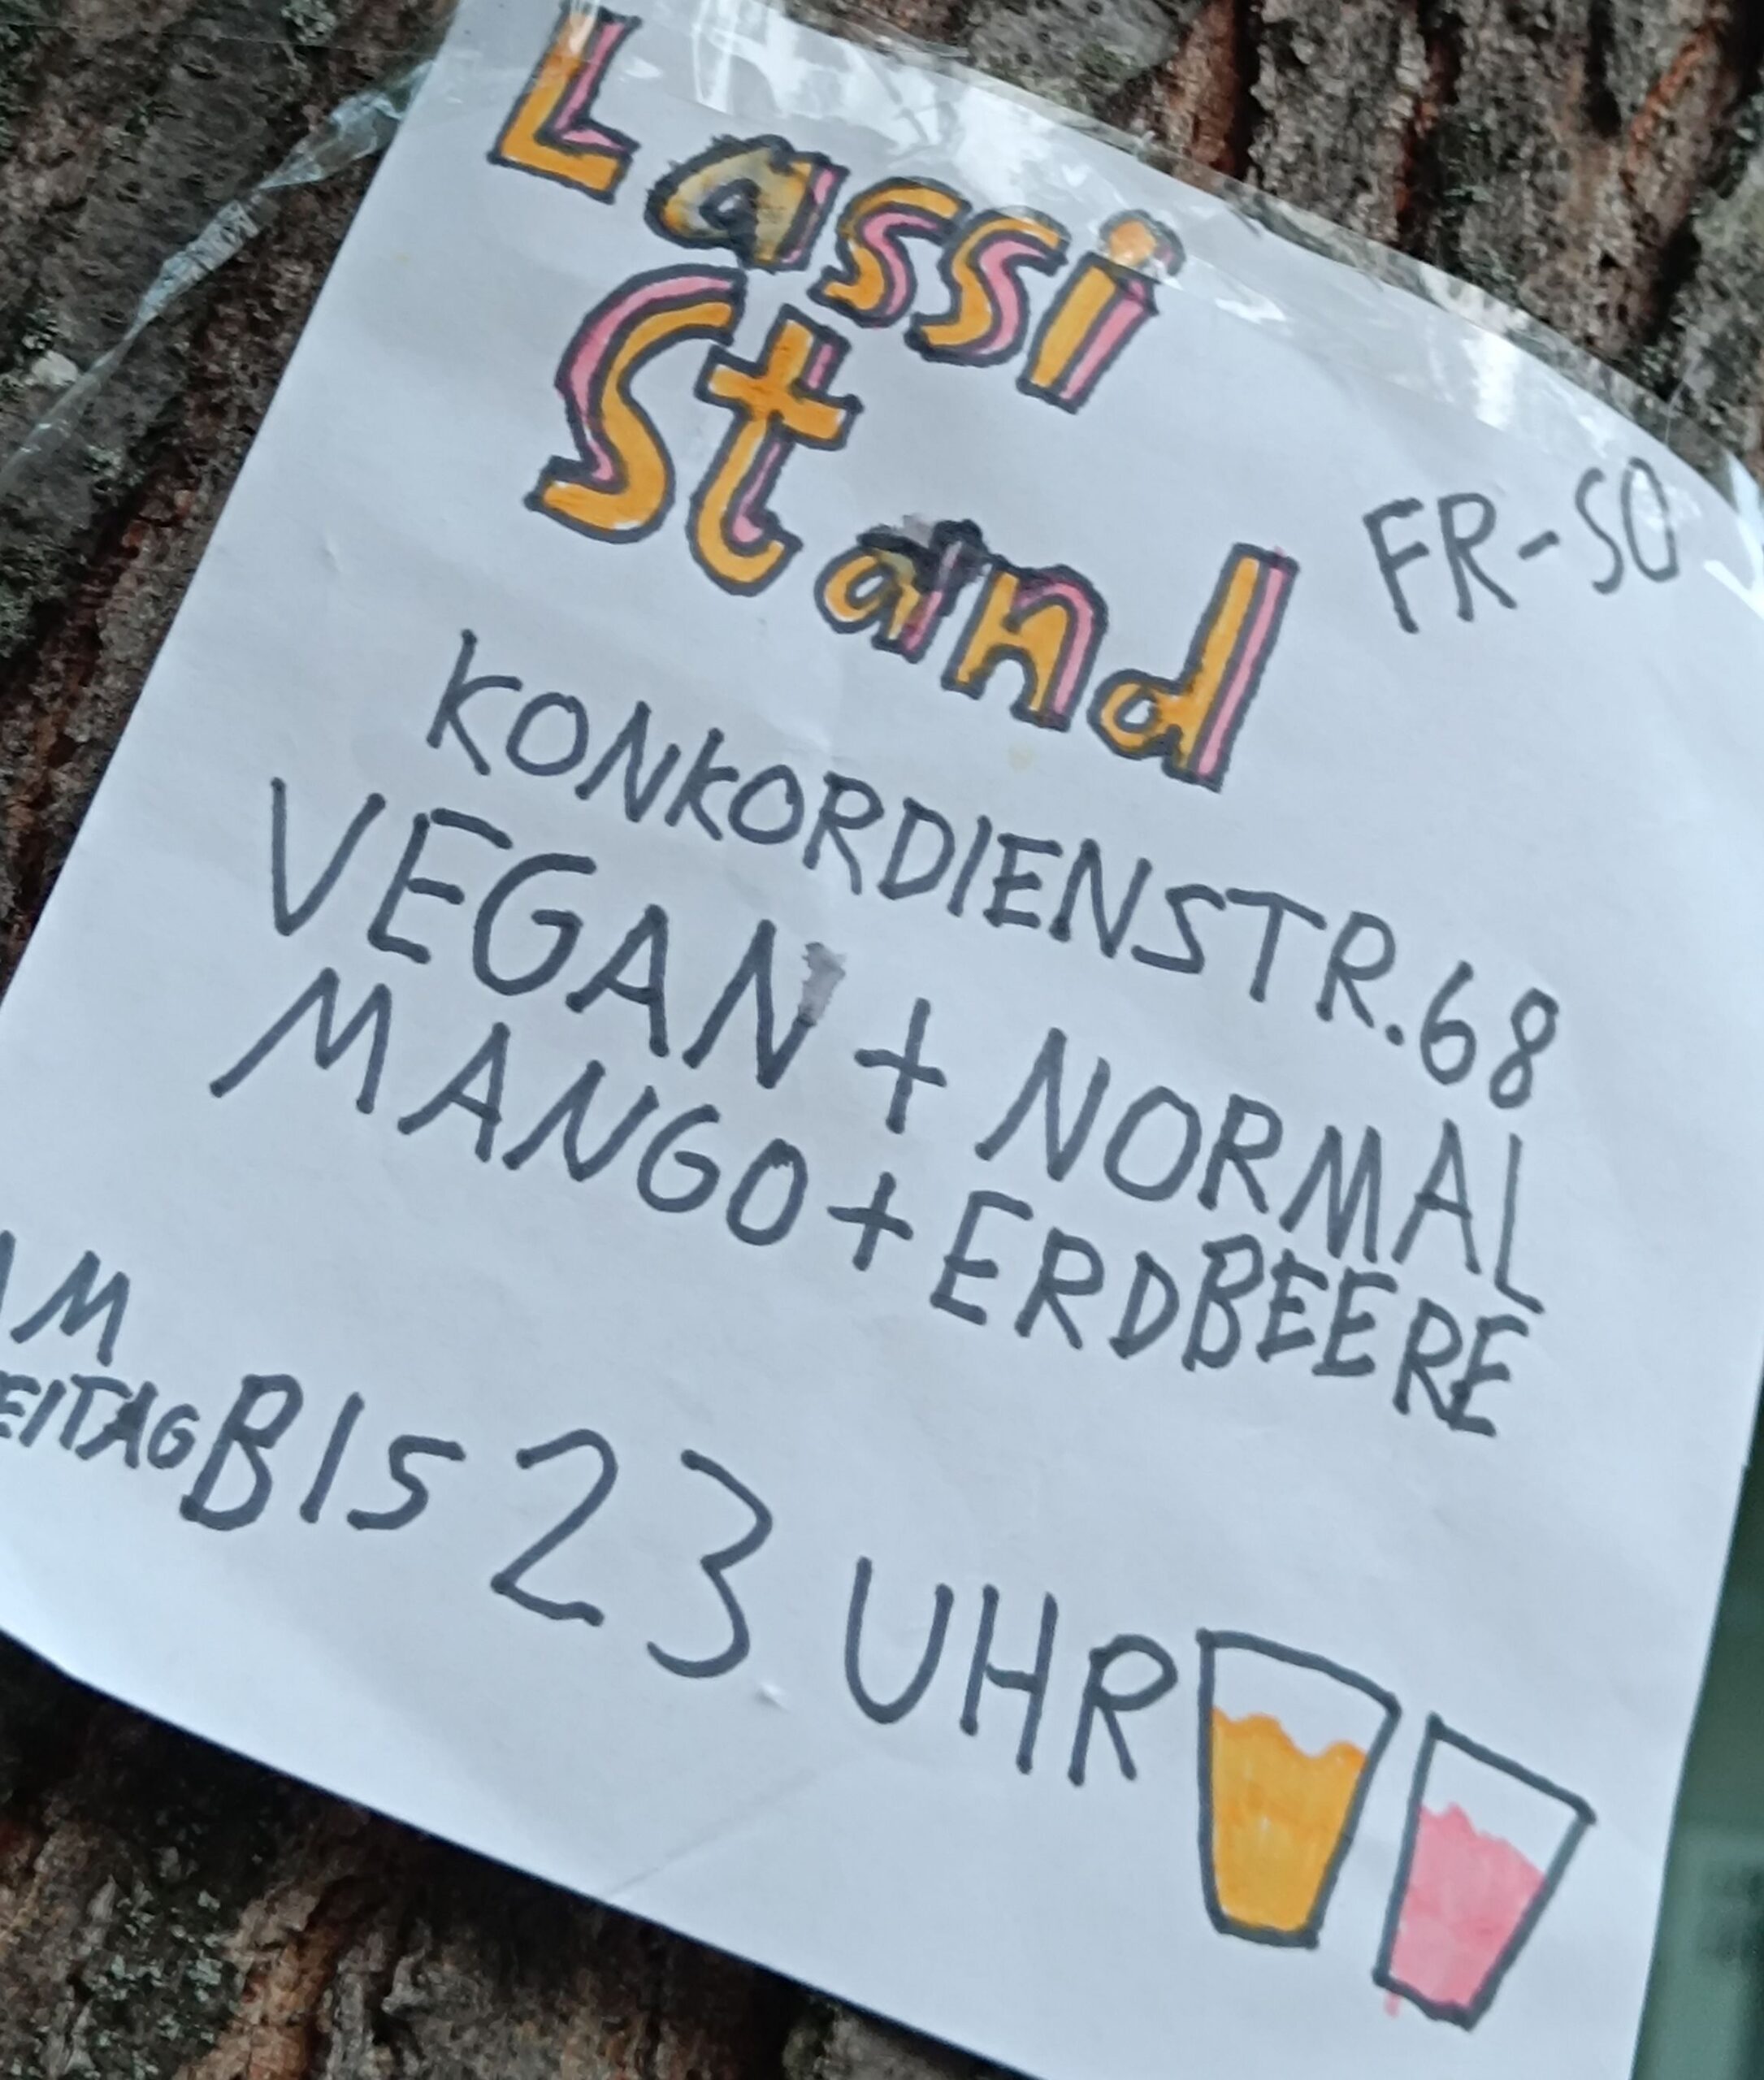 Lassi
Stand
FR-SO
KONKORDIENSTR.68
VEGAN + NORMAL
MANGO + ERDBEERE
AM
EITAG BIS 23 UHR